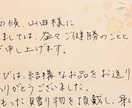 の候、山田様に
ましては、益々ご健勝のこと
申し上げます。
びは、結構なお品をお送り
りがとうございます。
もった贈り物を頂戴し、